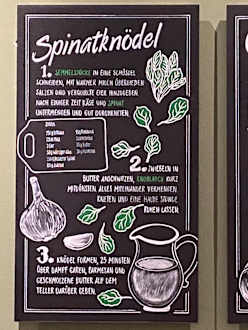 Spinatknödel
1. SEMMELSTÜCKE IN EINE SCHÜSSEL
SCHNEIDEN, MIT WARMER MILCH ÜBERGIESSEN
SALZEN UND VERQUIRLTE EIER HINZUGEBEN
NACH EINIGER ZEIT KÄSE UND SPINAT
UNTERMENGEN UND GUT DURCHKNETEN.
2. ZWIEBELN IN
BUTTER ANSCHWITZEN, KNOBLAUCH KURZ
MITDÜNSTEN ALLES MITEINANDER VERMENGEN,
KNETEN UND EINE HALBE STUNDE
RUHEN LASSEN.
3. KNÖDEL FORMEN, 25 MINUTEN
ÜBER DAMPF GAREN, PARMESAN UND
GESCHMOLZENE BUTTER AUF DEM
TELLER DARÜBER GEBEN.